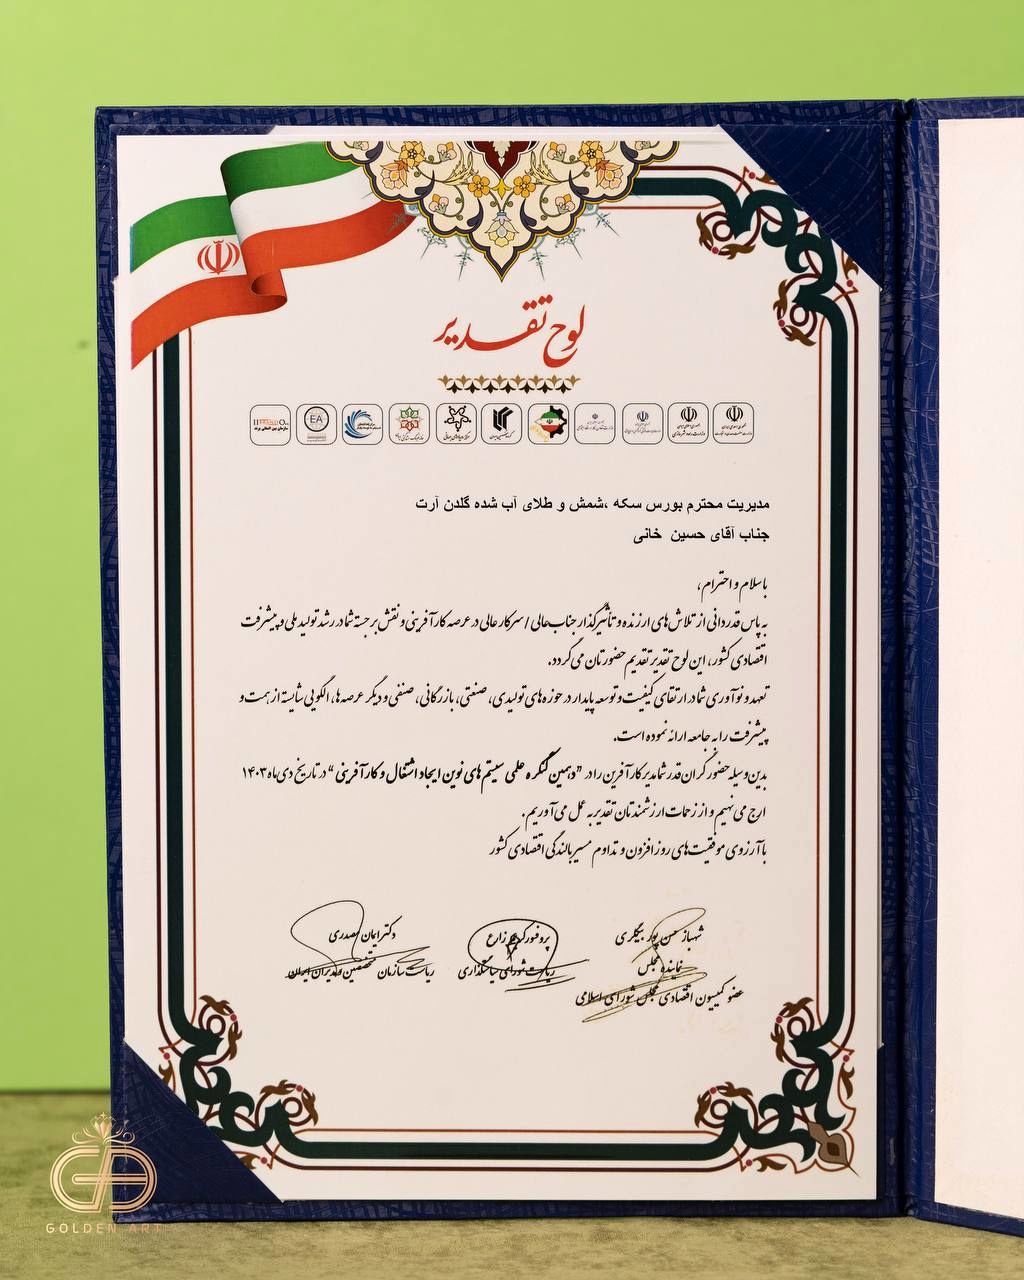 لوح تقدیر
مدیریت محترم بورس سکه ،شمش و طلای آب شده گلدن آرت
جناب آقای حسین خانی
باسلام و احترام،
به پاس قدردانی از تلاش‌های ارزنده و تأثیرگذار جناب‌عالی / سرکار عالی در عرصه کارآفرینی و نقش برجسته شما در رشد تولید ملی و پیشرفت
اقتصادی کشور، این لوح تقدیر تقدیم حضورتان می‌گردد.
تعهد و نوآوری شما در ارتقای کیفیت و توسعه پایدار در حوزه‌های تولیدی، صنعتی، بازرگانی، صنفی و دیگر عرصه‌ها، الگویی شایسته از همت و
پیشرفت را به جامعه ارائه نموده است.
بدین وسیله حضور گران‌قدر شما مدیر کارآفرین را در "دهمین کنگره علمی سیستم‌های نوین ایجاد اشتغال و کارآفرینی" در تاریخ دی ماه ۱۴۰۳
ارج می‌نهیم و از زحمات ارزشمندتان تقدیر به عمل می‌آوریم.
با آرزوی موفقیت‌های روزافزون و تداوم مسیر بالندگی اقتصادی کشور
شهباز حسن پور بیگلری
نماینده مجلس
عضو کمیسیون اقتصادی مجلس شورای اسلامی
پروفسور کریم زارع
ریاست شورای سیاستگذاری
دکتر ایمان صدری
ریاست سازمان متخصصین و مدیران ایران
GOLDEN ART